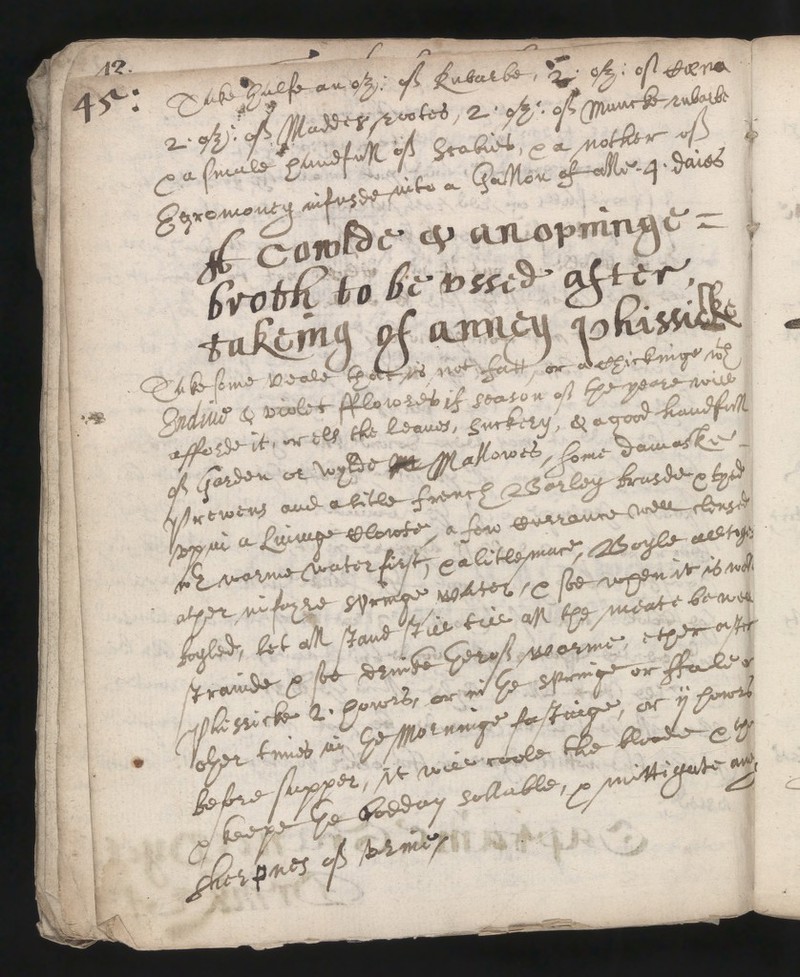 42.
45: Take halfe an oz: of Rubarbe, 2: oz: of
2. oz: of Madder rootes, 2. oz: of Muncke rubarbe
& a smale handfull of Scabies, & a nother of
Egromoney infusde into a Gallon of alle 4. daies
A Cowlde & an opninge =
broth to be vssed after,
takeing of anney phissicke
Take some veale that is not fatt, or a chickinge wth
Endive & violet fflowres if season of the yeare will
afforde it, or els the leaves, suckery, & a good handfull
of Garden or wylde Mallowes, some damaske
Prewens and a litle french Barley brusde & tyed
vp in a Lininge Clowte, a few Currance well clensed
wth warme water first, & a litle mace, Boyle all toge
ather in fayre springe water, & soe when it is well
boyled, let all stand still till all the meate be well
strainde & soe drinke herof warme, ether after
Phissicke 2. howrs, or in the springe or ffale or
other times in the Morninge fastinge, or ij howrs
before supper, it will coole the bloode & the
& keepe the boddy sollable, & mittigate any
sherpnes of vrine